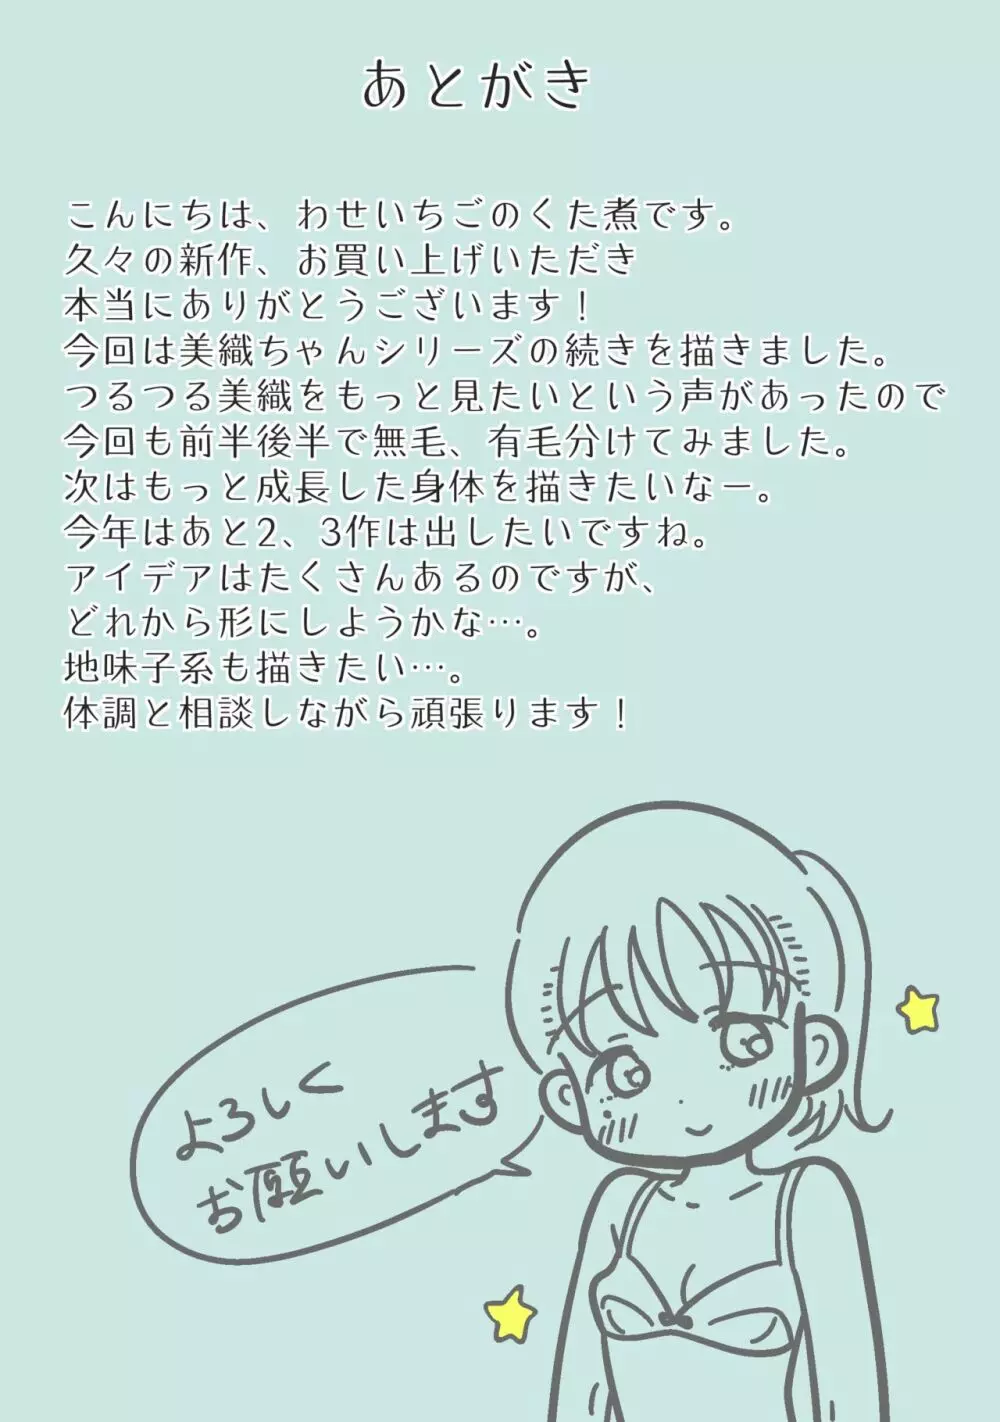 あとがき
こんにちは、わせいちごのくた煮です。
久々の新作、お買い上げいただき
本当にありがとうございます！
今回は美織ちゃんシリーズの続きを描きました。
つるつる美織をもっと見たいという声があったので
今回も前半後半で無毛、有毛分けてみました。
次はもっと成長した身体を描きたいなー。
今年はあと2、3作は出したいですね。
アイデアはたくさんあるのですが、
どれから形にしようかな…。
地味子系も描きたい…。
体調と相談しながら頑張ります！
よろしく
お願いします